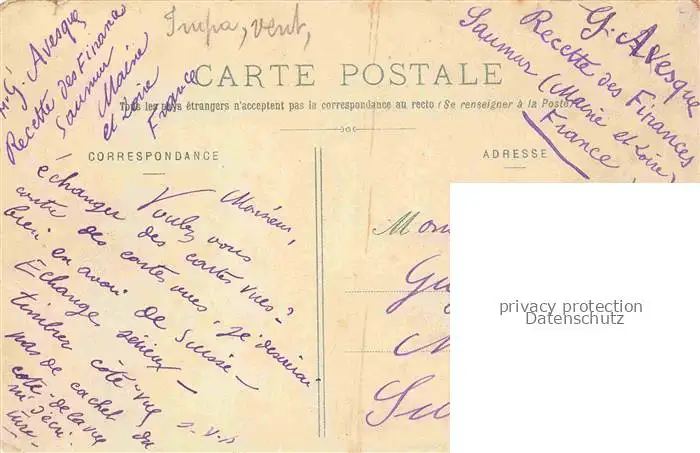 Impa, vent,
Mr G. Avesque
Recette des Finances
Saumur
Maine
et Loire
France
G. Avesque
Recette des Finances
Saumur (Maine et Loire)
France
CARTE POSTALE
Tous les pays étrangers n'acceptent pas la correspondance au recto (Se renseigner à la Poste)
CORRESPONDANCE
ADRESSE
Monsieur,
Voulez vous
échanger des cartes vues?
contre des cartes vues, je désirerai
bien en avoir de Suisse –
Echange sérieux –
timbre côté vue
pas de cachet du
côté de la vue
Mon
privacy protection
Datenschutz